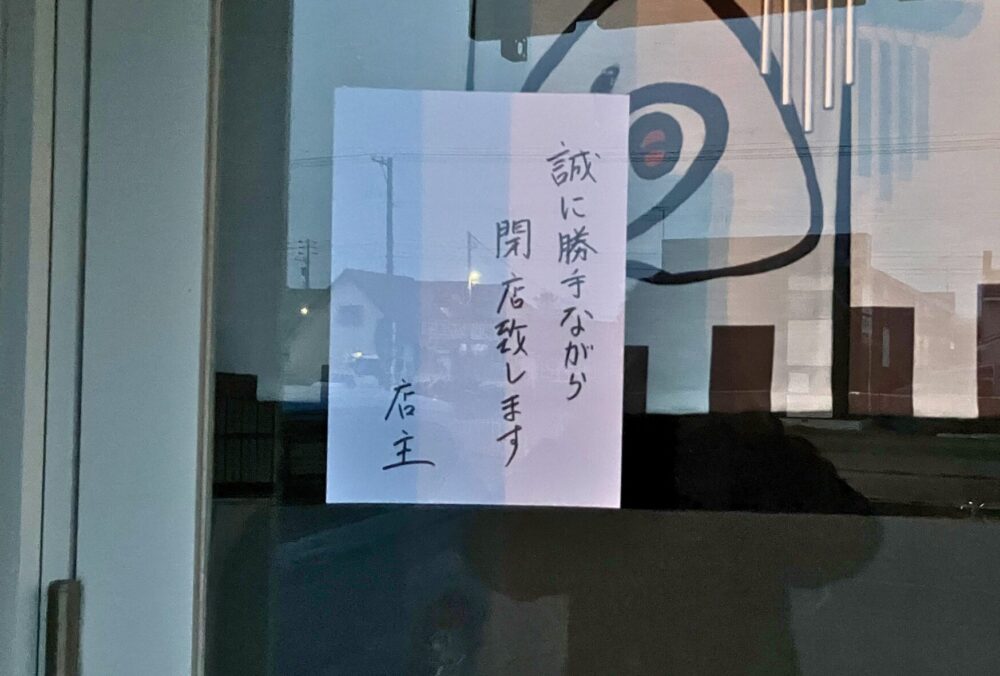 誠に勝手ながら
閉店致します
店主